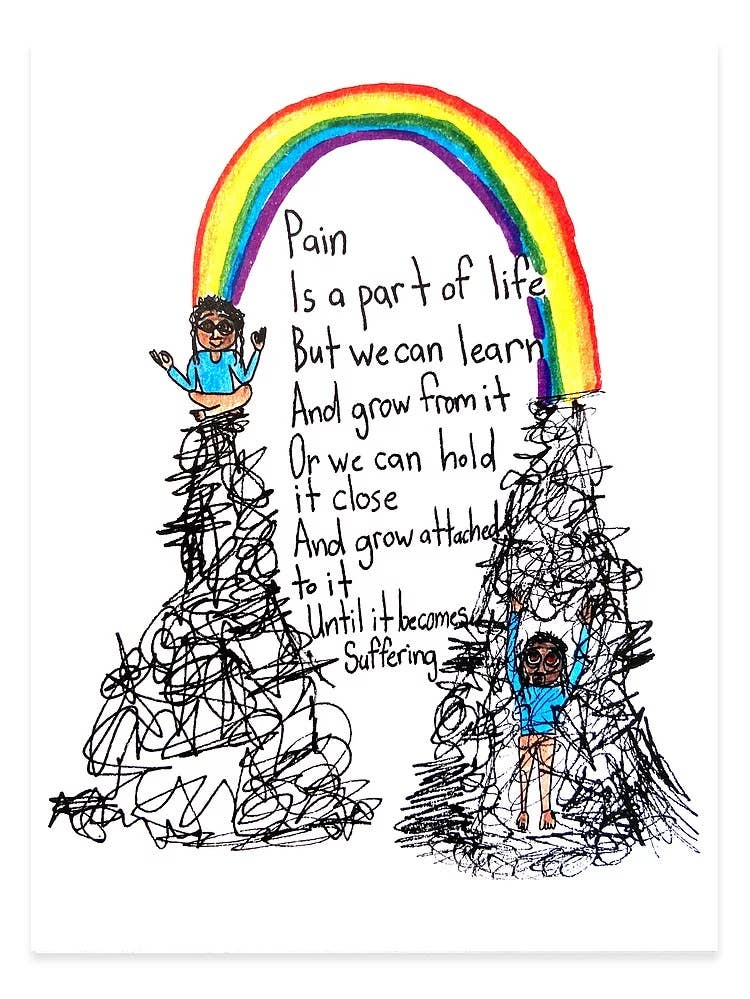 Pain
Is a part of life
But we can learn
And grow from it
Or we can hold
it close
And grow attached
to it
Until it becomes
Suffering